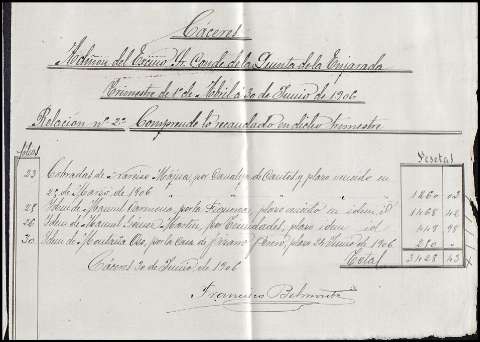 Cáceres
Admon del Excmo Sr. Conde de la Quinta de la Enjarada
Trimestre de 1º de Abril á 30 de Junio de 1906
Relacion nº 2º Comprende lo recaudado en dicho trimestre
Folios Pesetas
23 Cobradas de Narciso Maquea, por Canaleja de plazo vencido en
29 de Marzo de 1906 " " " 1260 03
28 Idem de Manuel Carmona por la Figuera, plazo vencido en idem id 1468 42
26 Idem de Manuel Martin, por plazo idem id 448 98
30 Idem de por la Casa de plazo 24 Junio de 1906 250 "
Total 3428 43
Cáceres 30 de Junio de 1906
Francisco Belmonte